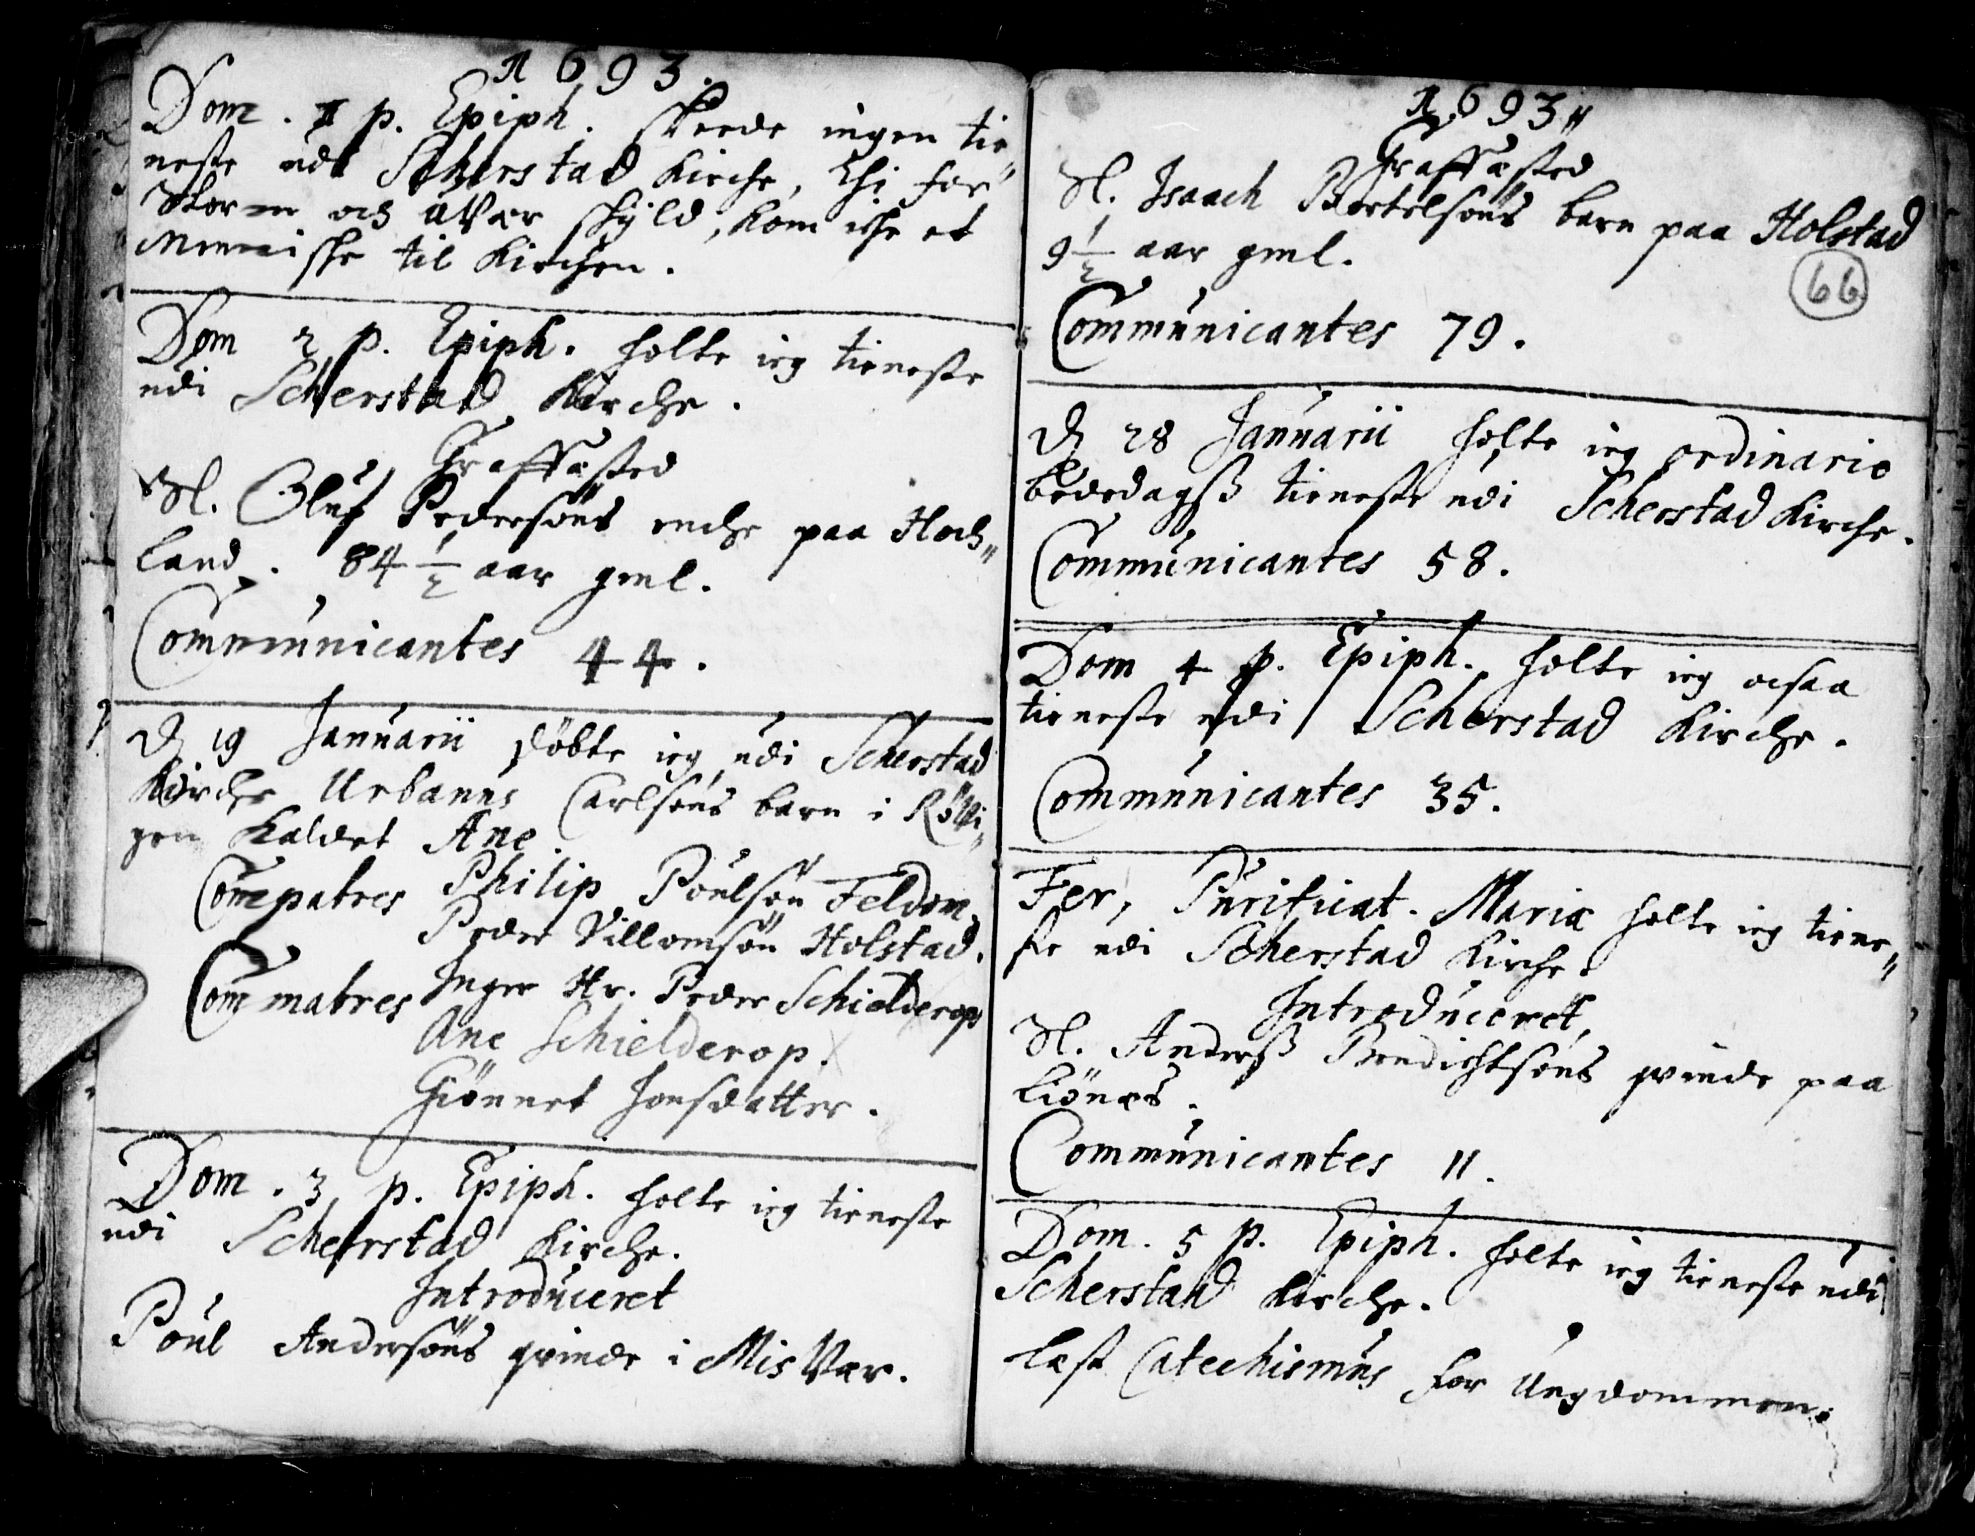 1693.
Dom. 1 p. Epiph. skeede ingen tie„
neste udi Scherstad Kirche, thi for
Storm och uVær skyld, kom iche et
Menniske til Kirchen.
Dom 2 p. Epiph. holte ieg tieneste
udi Scherstad Kirche.
Graffæsted
Sl. Oluf Pedersøns enche paa Hoch„
land. 84 1/2 aar gml.
Communicantes 44.
D 19 Januarii døbte ieg udi Scherstad
Kirche Urbanus Carlsøns barn i
gen kaldet Ane
Compatres Philip Poulsøn Feldom
Peder Villomsøn Holstad.
Commatres Inger Hr. Peder Schielderop
Ane Schielderop.
Giønnet Jonsdatter.
Dom. 3 p. Epiph. holte ieg tieneste
udi Scherstad Kirche.
Introduceret
Poul Andersøns qvinde i MisVær.
1693„
Graffæsted
Sl. Isaach Bertelsøns barn paa Holstad
9 1/2 aar gml.
66
Communicantes 79.
D 28 Januarii holte ieg ordinarie
bededagss tieneste udi Scherstad Kirche.
Communicantes 58.
Dom 4 p. Epiph. holte ieg ocsaa
tieneste udi Scherstad Kirche.
Communicantes 35.
Fer, Purificat. Mariæ holte ieg tiene„
ste udi Scherstad Kirche.
Introduceret,
Sl. Anderss Bendichtsøns qvinde paa
Liønæs.
Communicantes 11.
Dom. 5 p. Epiph. holte ieg tieneste udi
Scherstad Kirche.
læst Catechismus for Ungdommen.